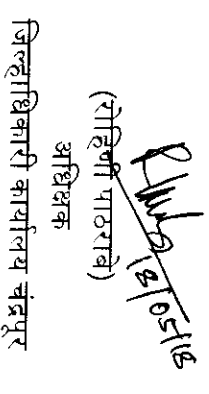 18/05/18
(रोहिणी पाठराबे)
अधिक्षक
जिल्हाधिकारी कार्यालय चंद्रपूर